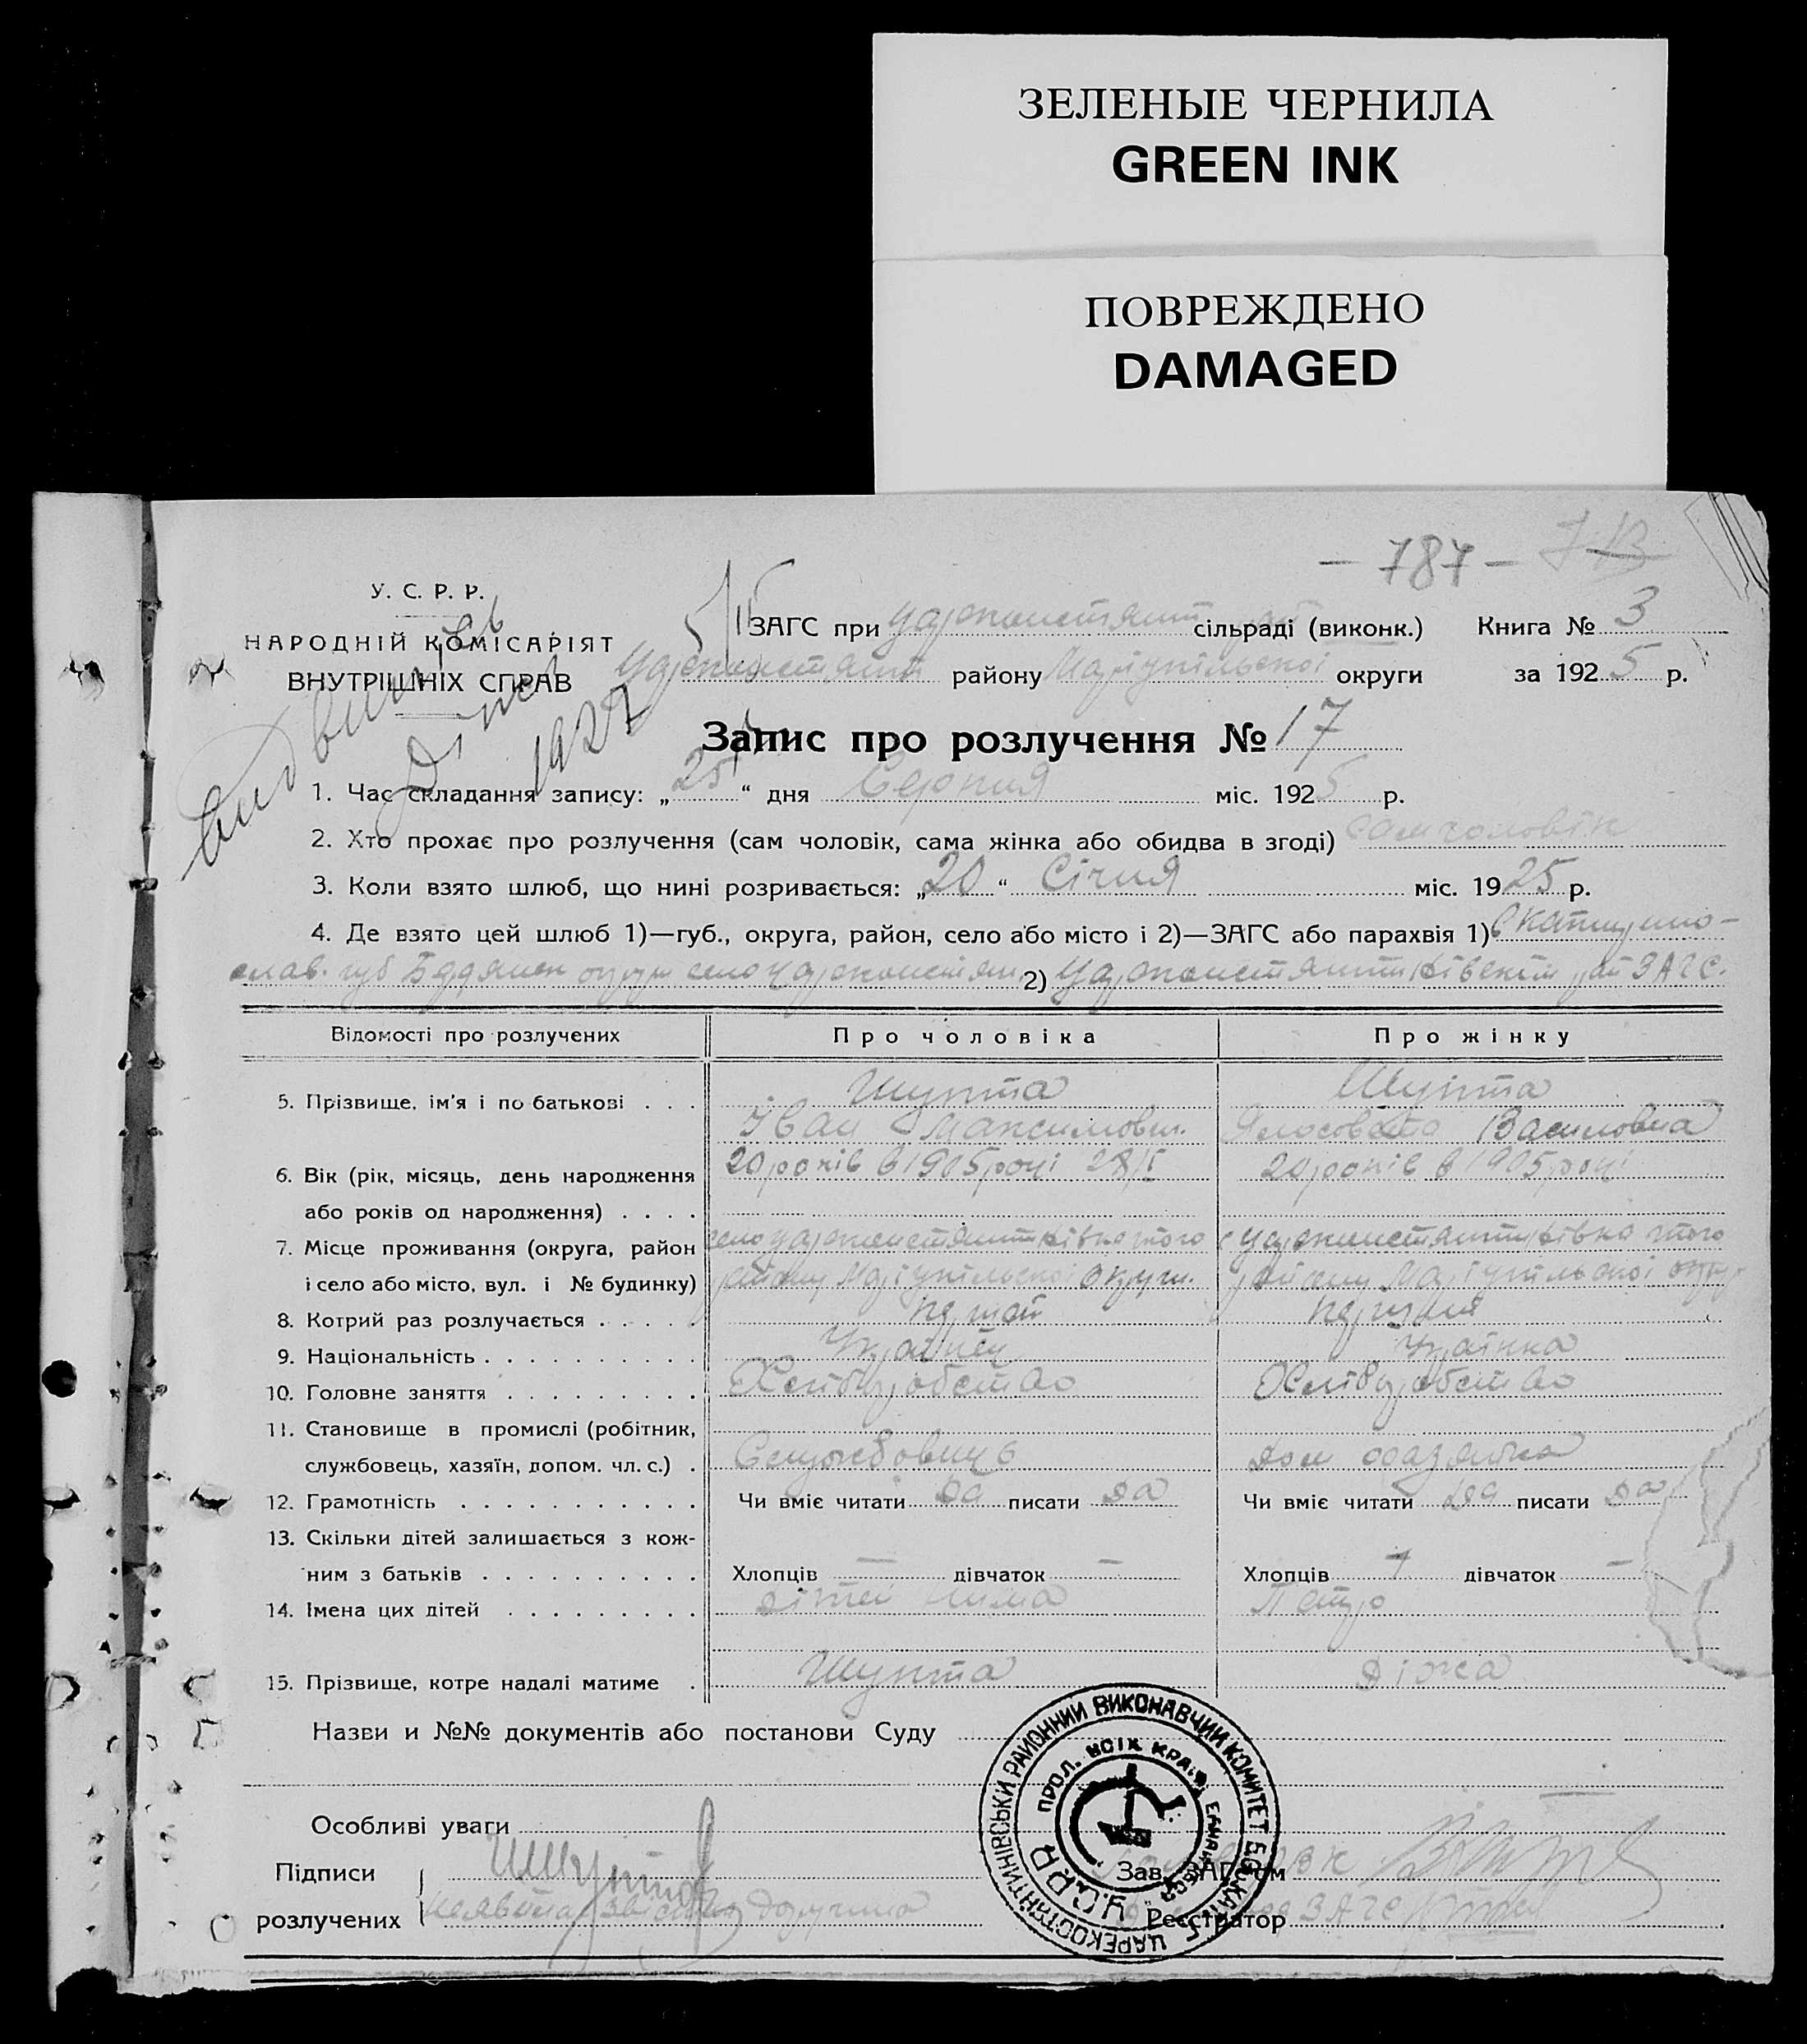 ЗЕЛЕНЫЕ ЧЕРНИЛА
GREEN INK
ПОВРЕЖДЕНО
DAMAGED
— 787 —
У. С. Р. Р.
НАРОДНІЙ КОМІСАРІЯТ
ВНУТРІШНІХ СПРАВ
1927
ЗАГС при Цареконстянт сільраді (виконк.) Книга № 3
Цареконстянт району Маріупільської округи за 1925 р.
Запис про розлучення № 17
1. Час складання запису: „25“ дня Серпня міс. 1925 р.
2. Хто прохає про розлучення (сам чоловік, сама жінка або обидва в згоді) сам чоловік
3. Коли взято шлюб, що нині розривається: „20“ Січня міс. 1925 р.
4. Де взято цей шлюб 1)—губ., округа, район, село або місто і 2)—ЗАГС або парахвія 1) Катерино-
слав. губ Бердянск округи село Цареконстян. 2) Царонстянтинівскім рай ЗАГС.
Відомості про розлучених Про чоловіка Про жінку
5. Прізвище, ім'я і по батькові . . . Шупта Шупта
Іван Максимович. Василовна
6. Вік (рік, місяць, день народження 20 років в 1905 році 28/I 20 років в 1905 році
або років од народження) . . . .
7. Місце проживання (округа, район село Цареконстянтинівка того с Цареконстянтинівка того
і село або місто, вул. і № будинку) району Маріупільскої округи. району Маріупільскої округ
8. Котрий раз розлучається . . . . перший перший
9. Національність . . . . . . . . . . Українец Українка
10. Головне заняття . . . . . . . . . Хліборобство Хліборобство
11. Становище в промислі (робітник,
службовець, хазяїн, допом. чл. с.) . Службовиць дом хазяйка
12. Грамотність . . . . . . . . . . . Чи вміє читати да писати да Чи вміє читати да писати да
13. Скільки дітей залишається з кож-
ним з батьків . . . . . . . . . . Хлопців — дівчаток — Хлопців 1 дівчаток —
14. Імена цих дітей . . . . . . . . . дітей нима Петро
15. Прізвище, котре надалі матиме . Шупта Діжа
Назви и №№ документів або постанови Суду
Особливі уваги
Підписи Шупта Зав. ЗАГС'ом
розлучених Реєстратор ЗАГС
ЦАРЕКОСТЯНТИНІВСЬКИ РАЙОННИЙ ВИКОНАВЧИЙ КОМИТЕТ
ПРОЛ. ВСІХ КРАЇВ ЄДНАЙТЕСЯ
У.С.Р.Р.